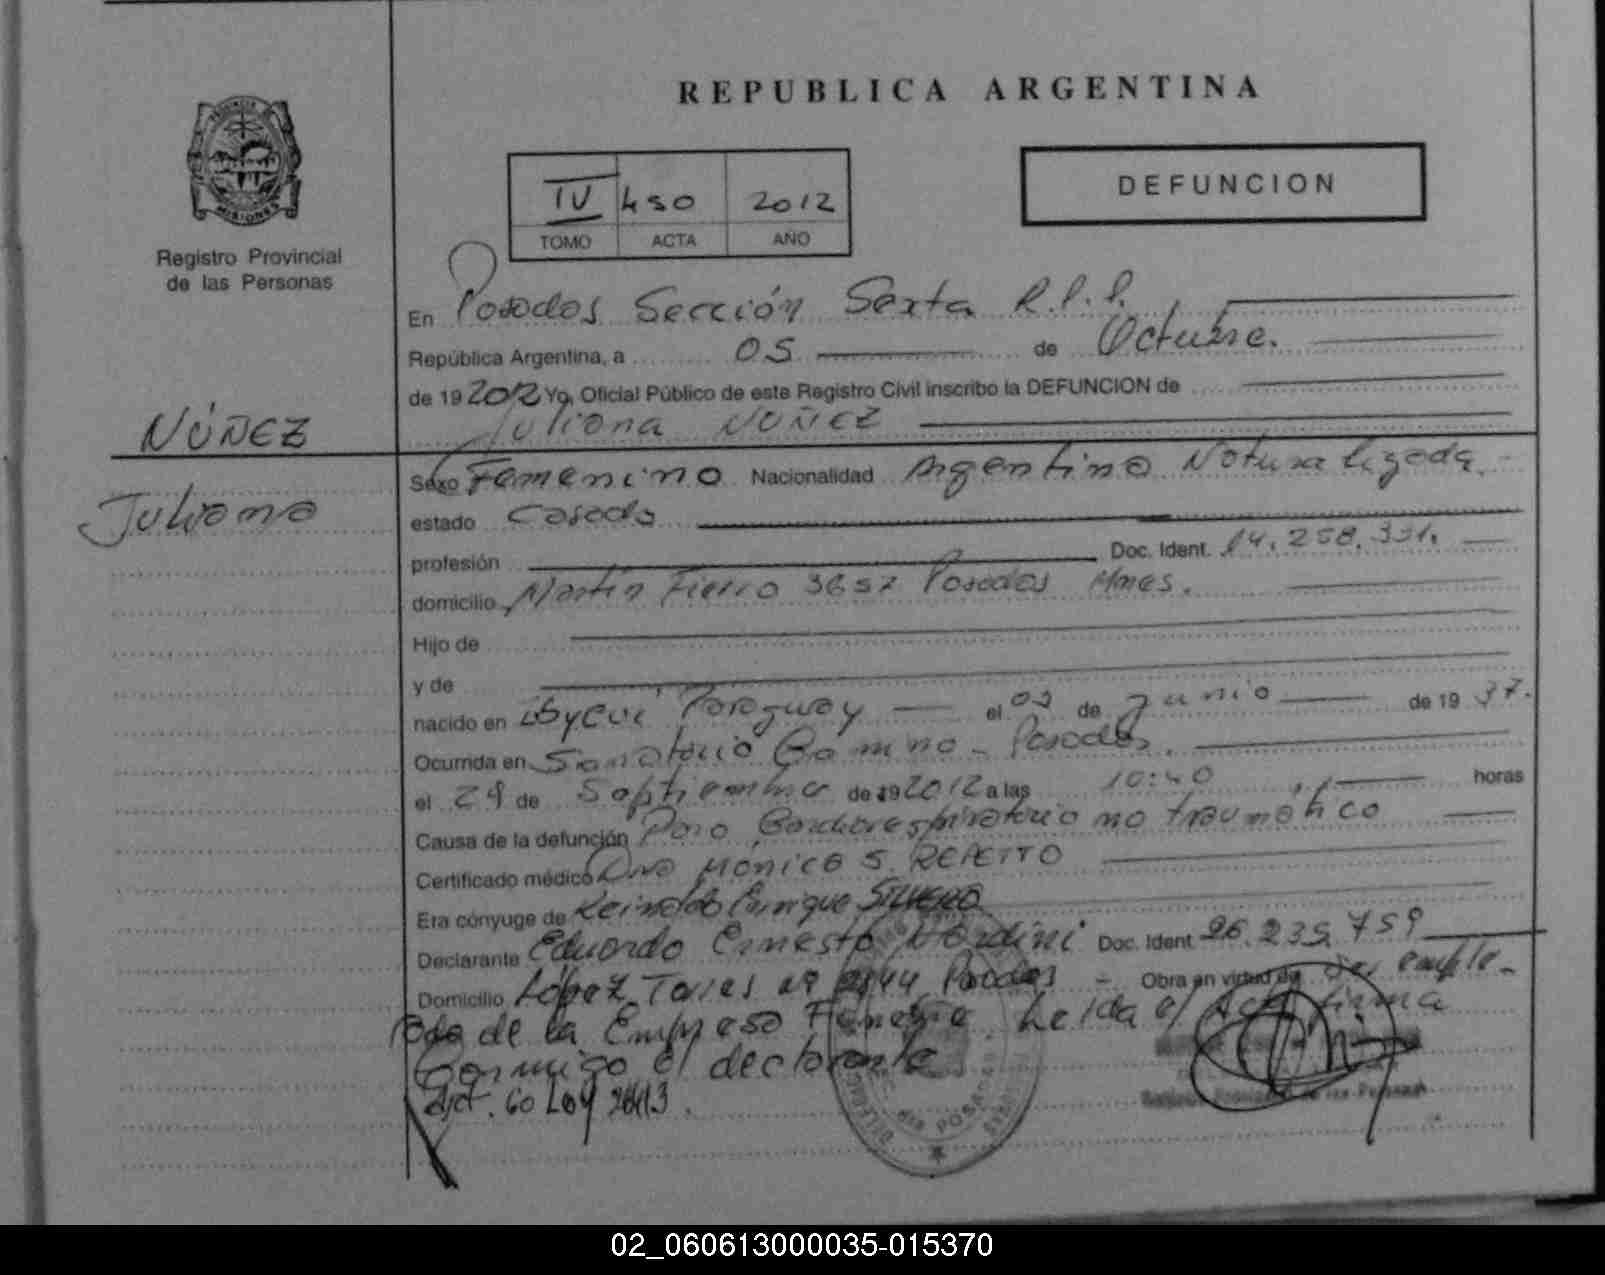 REPUBLICA ARGENTINA
MISIONES
Registro Provincial
de las Personas
IV 450 2012
TOMO ACTA AÑO
DEFUNCION
En Posadas Sección Sexta R.P.P.
República Argentina, a 05 de Octubre.
de 19 2012 Yo, Oficial Público de este Registro Civil inscribo la DEFUNCION de
Juliana NÚÑEZ
NÚÑEZ
Juliana
Sexo Femenino Nacionalidad Argentina Naturalizada
estado Casada
profesión Doc. Ident. 14.258.331.
domicilio Martín Fierro 3657 Posadas Mnes.
Hijo de
y de
nacido en Paraguay el 03 de Junio de 19 37.
Ocurrida en Sanatorio Camino - Posadas.
el 29 de Septiembre de 19 2012 a las 10:40 horas
Causa de la defunción Paro Cardiorespiratorio no traumático
Certificado médico Dra Mónica S. REPETTO
Era cónyuge de Reinaldo Enrique
Declarante Eduardo Ernesto Nardini Doc. Ident. 26.235.759
Domicilio López Torres nº 2844 Posadas - Obra en virtud de ser emple-
ado de la Empresa Fúnebre. Leída el Acta firma
Conmigo el declarante
Art. 60 Ley 26413.
POSADAS
02_060613000035-015370